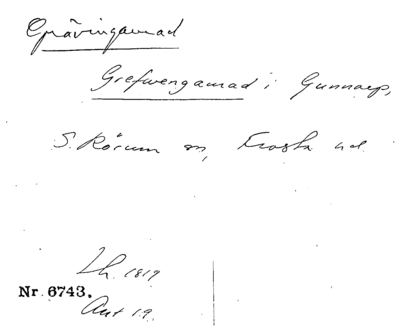 Grävingamad
Grefwengamad i Gunnarp,
S. Rörum sn, Frosta hd.
Lh. 1819
Nr 6743.
Aut 19.